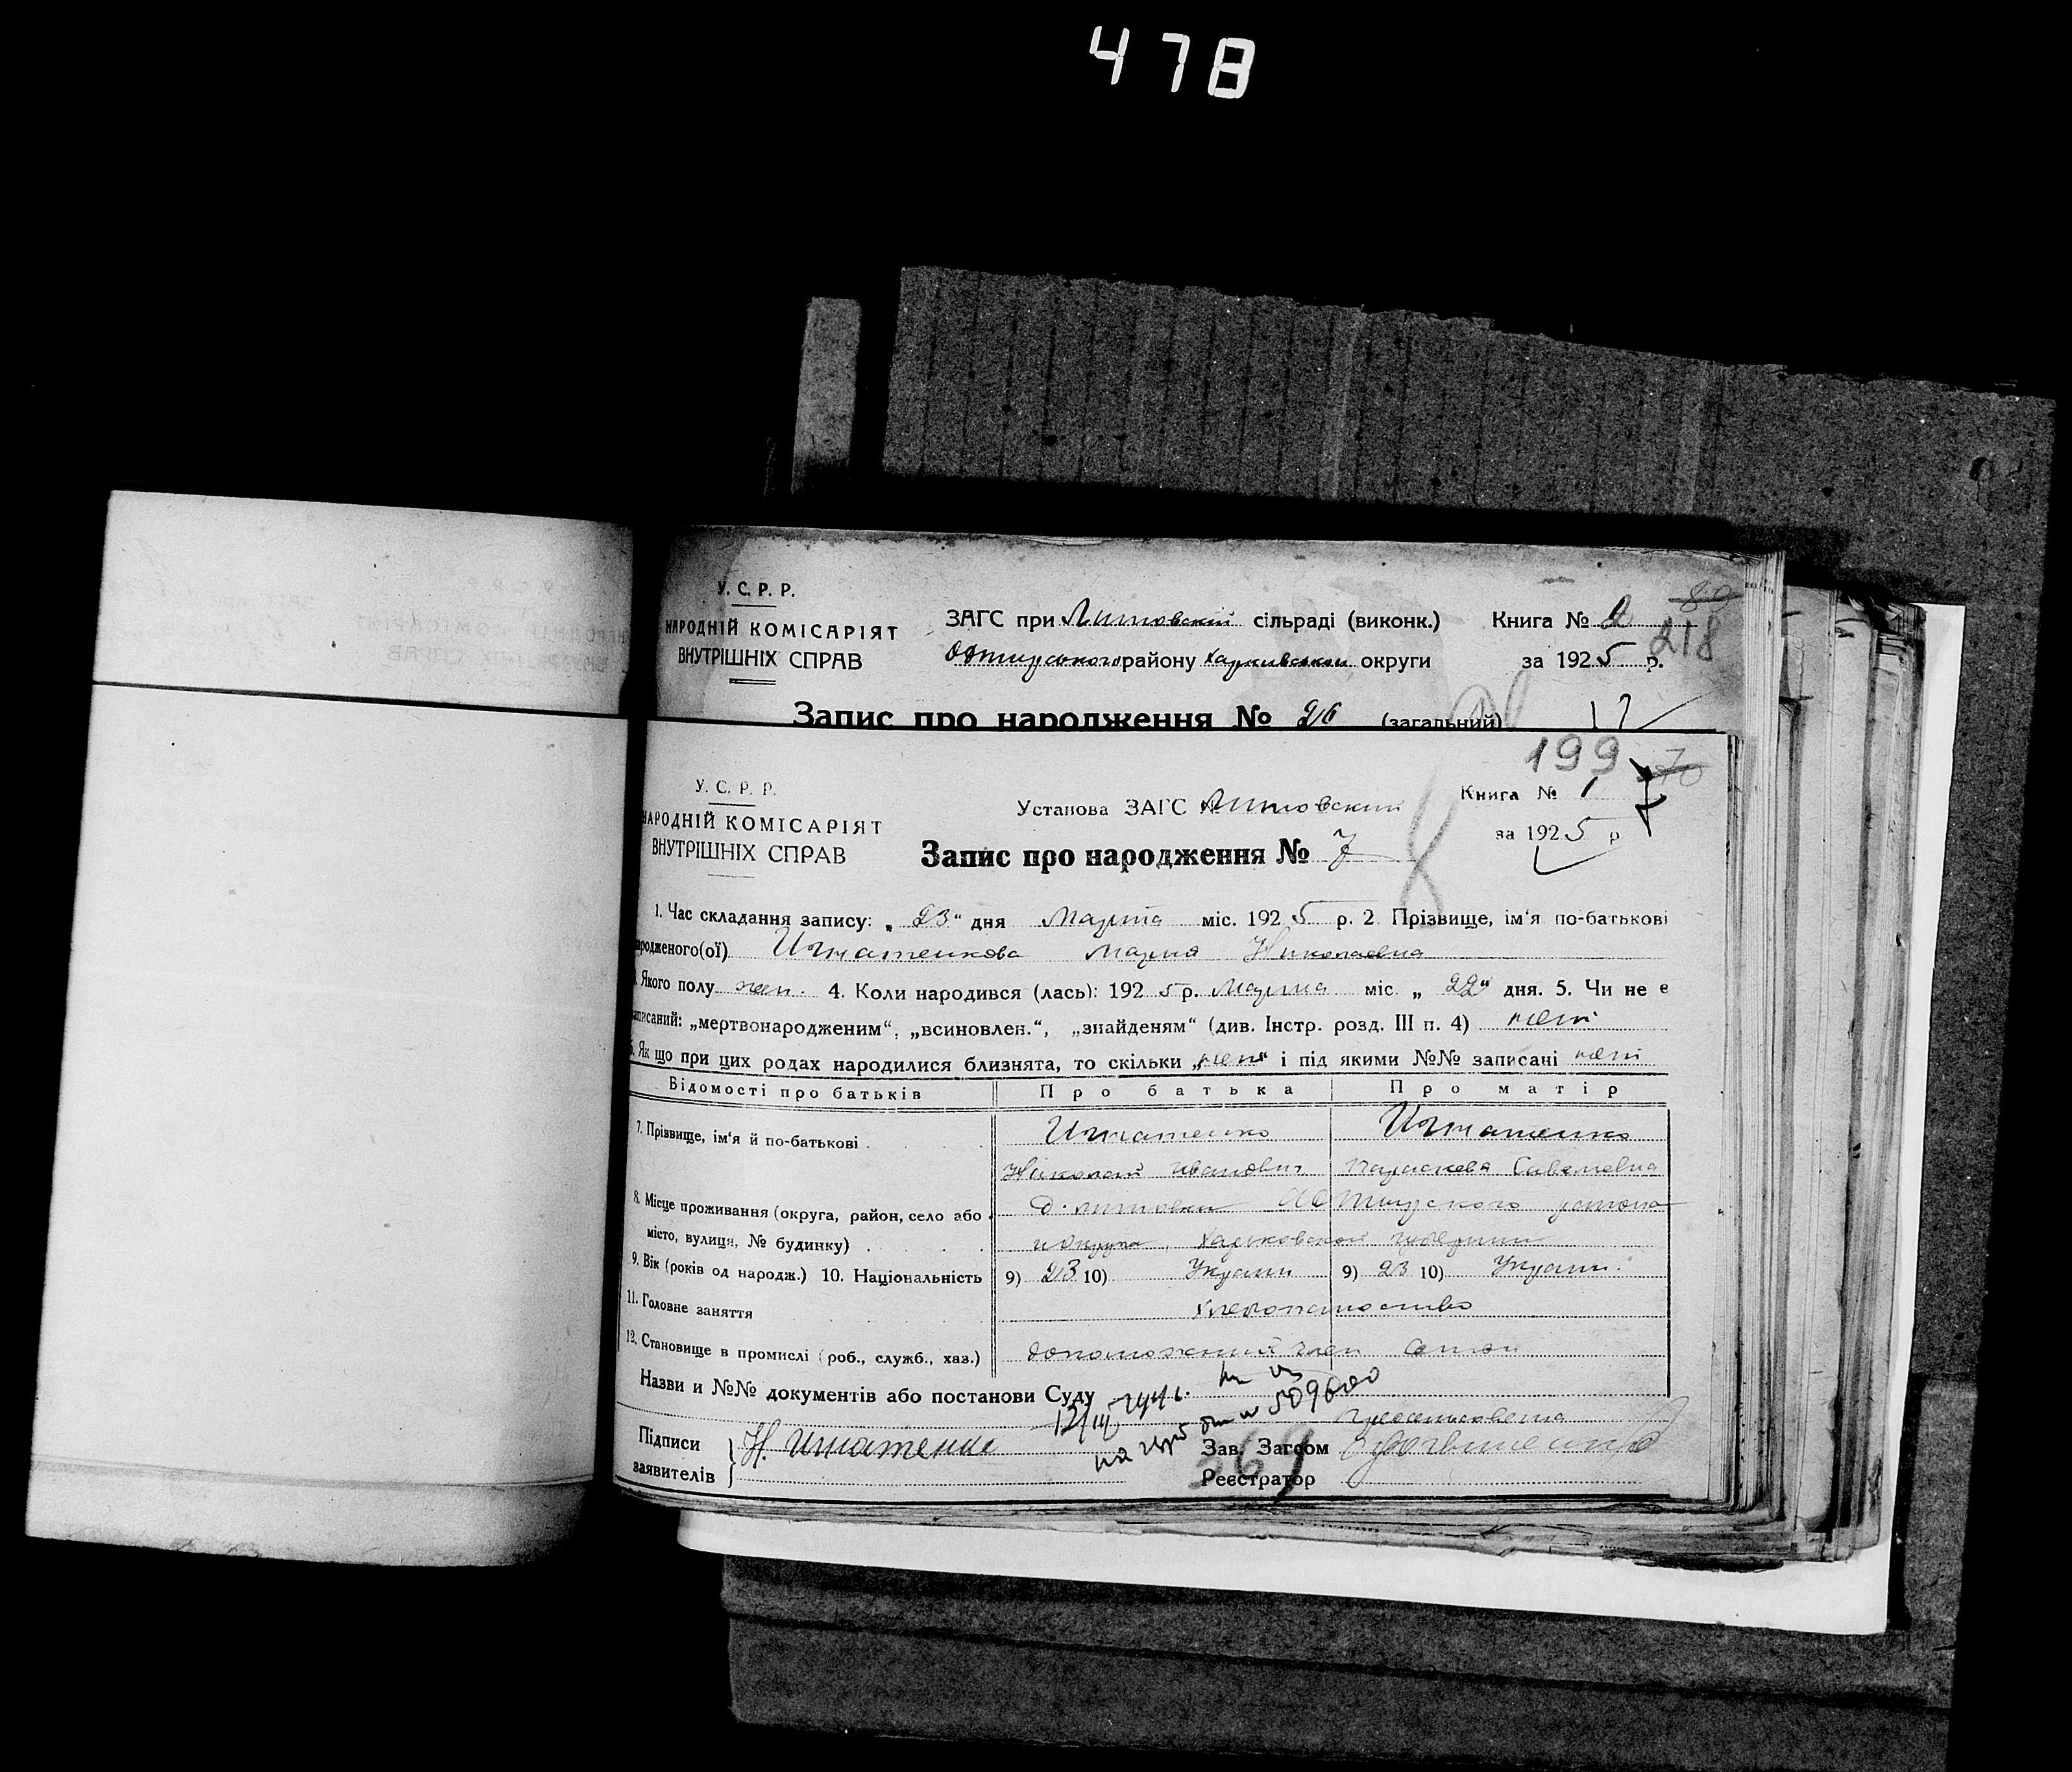 478
У. С. Р. Р.
НАРОДНІЙ КОМІСАРІЯТ
ВНУТРІШНІХ СПРАВ
ЗАГС при Литовский сільраді (виконк.)
району Харкивской округи
Книга № 2
80
218
за 1925 р.
Запис про народження № 26 (загальний) 17
199
70
У. С. Р. Р.
НАРОДНІЙ КОМІСАРІЯТ
ВНУТРІШНІХ СПРАВ
Установа ЗАГС Литовский
Книга № 1
7
за 1925 р
Запис про народження № 7
8
1. Час складання запису: „ 23 “ дня Марта міс. 1925 р. 2 Прізвище, ім‘я по-батькові
родженого(ої) Игнатенкова Мария Николаевна
Якого полу жен. 4. Коли народився (лась): 1925 р. Марта міс. „ 22 “ дня. 5. Чи не є
записаний: „мертвонародженим“, „всиновлен.“, „знайденям“ (див. Інстр. розд. III п. 4) нет
6. Як що при цих родах народилися близнята, то скільки „нет“ і під якими №№ записані нет
Відомості про батьків
Про батька
Про матір
7. Прізвище, ім‘я й по-батькові
Игнатенко
Игнатенко
Николай Иванович
Параскева Савельевна
8. Місце проживання (округа, район, село або
місто, вулиця, № будинку)
д. Литовки района
Харьковской губернии
9. Вік (років од народж.) 10. Національність
9) 23 10) Украин
9) 23 10) Украин.
11. Головне заняття
хлебопашество
12. Становище в промислі (роб., служб., хаз.)
допоможний член
Назви и №№ документів або постанови Суду
509600
Підписи
заявителів
Н. Игнатенко
Зав. Загсом
Реєстратор
369